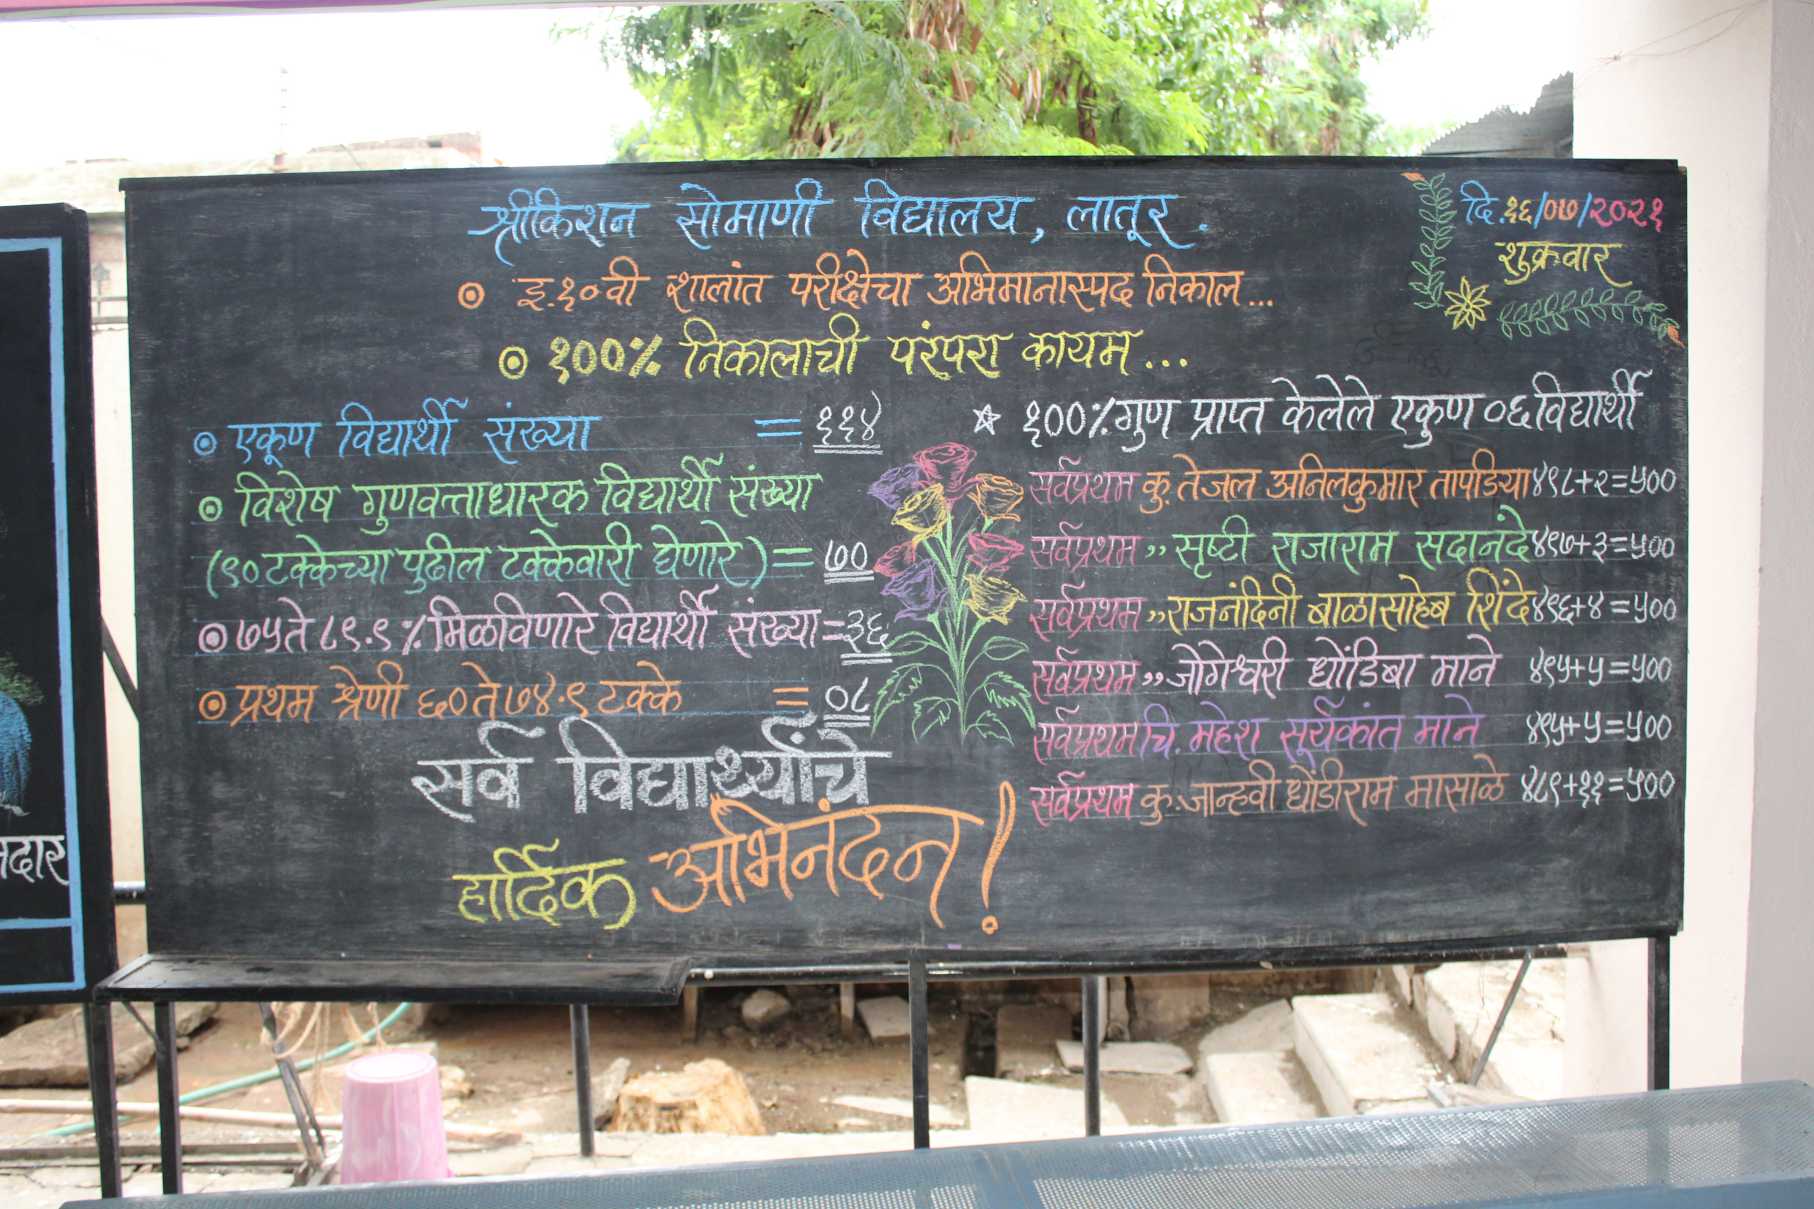 श्रीकिशन सोमाणी विद्यालय, लातूर.
दि.१६/०७/२०२१
शुक्रवार
इ.१०वी शालांत परीक्षेचा अभिमानास्पद निकाल...
१००% निकालाची परंपरा कायम...
एकूण विद्यार्थी संख्या = ११४
विशेष गुणवत्ताधारक विद्यार्थी संख्या
(९०टक्केच्या पुढील टक्केवारी घेणारे) = ७०
७५ते ८९.९% मिळविणारे विद्यार्थी संख्या = ३६
प्रथम श्रेणी ६० ते ७४.९ टक्के = ०८
सर्व विद्यार्थ्यांचे
हार्दिक अभिनंदन!
☆ १००% गुण प्राप्त केलेले एकुण ०६ विद्यार्थी
सर्वप्रथम कु. तेजल अनिलकुमार तापडिया ४९८+२=५००
सर्वप्रथम ,, सृष्टी राजाराम सदानंदे ४९७+३=५००
सर्वप्रथम ,, राजनंदिनी बाळासाहेब शिंदे ४९६+४=५००
सर्वप्रथम ,, जोगेश्वरी धोंडिबा माने ४९५+५=५००
सर्वप्रथम चि. महेश सूर्यकांत माने ४९५+५=५००
सर्वप्रथम कु. जान्हवी धोंडीराम मासाळे ४८९+११=५००